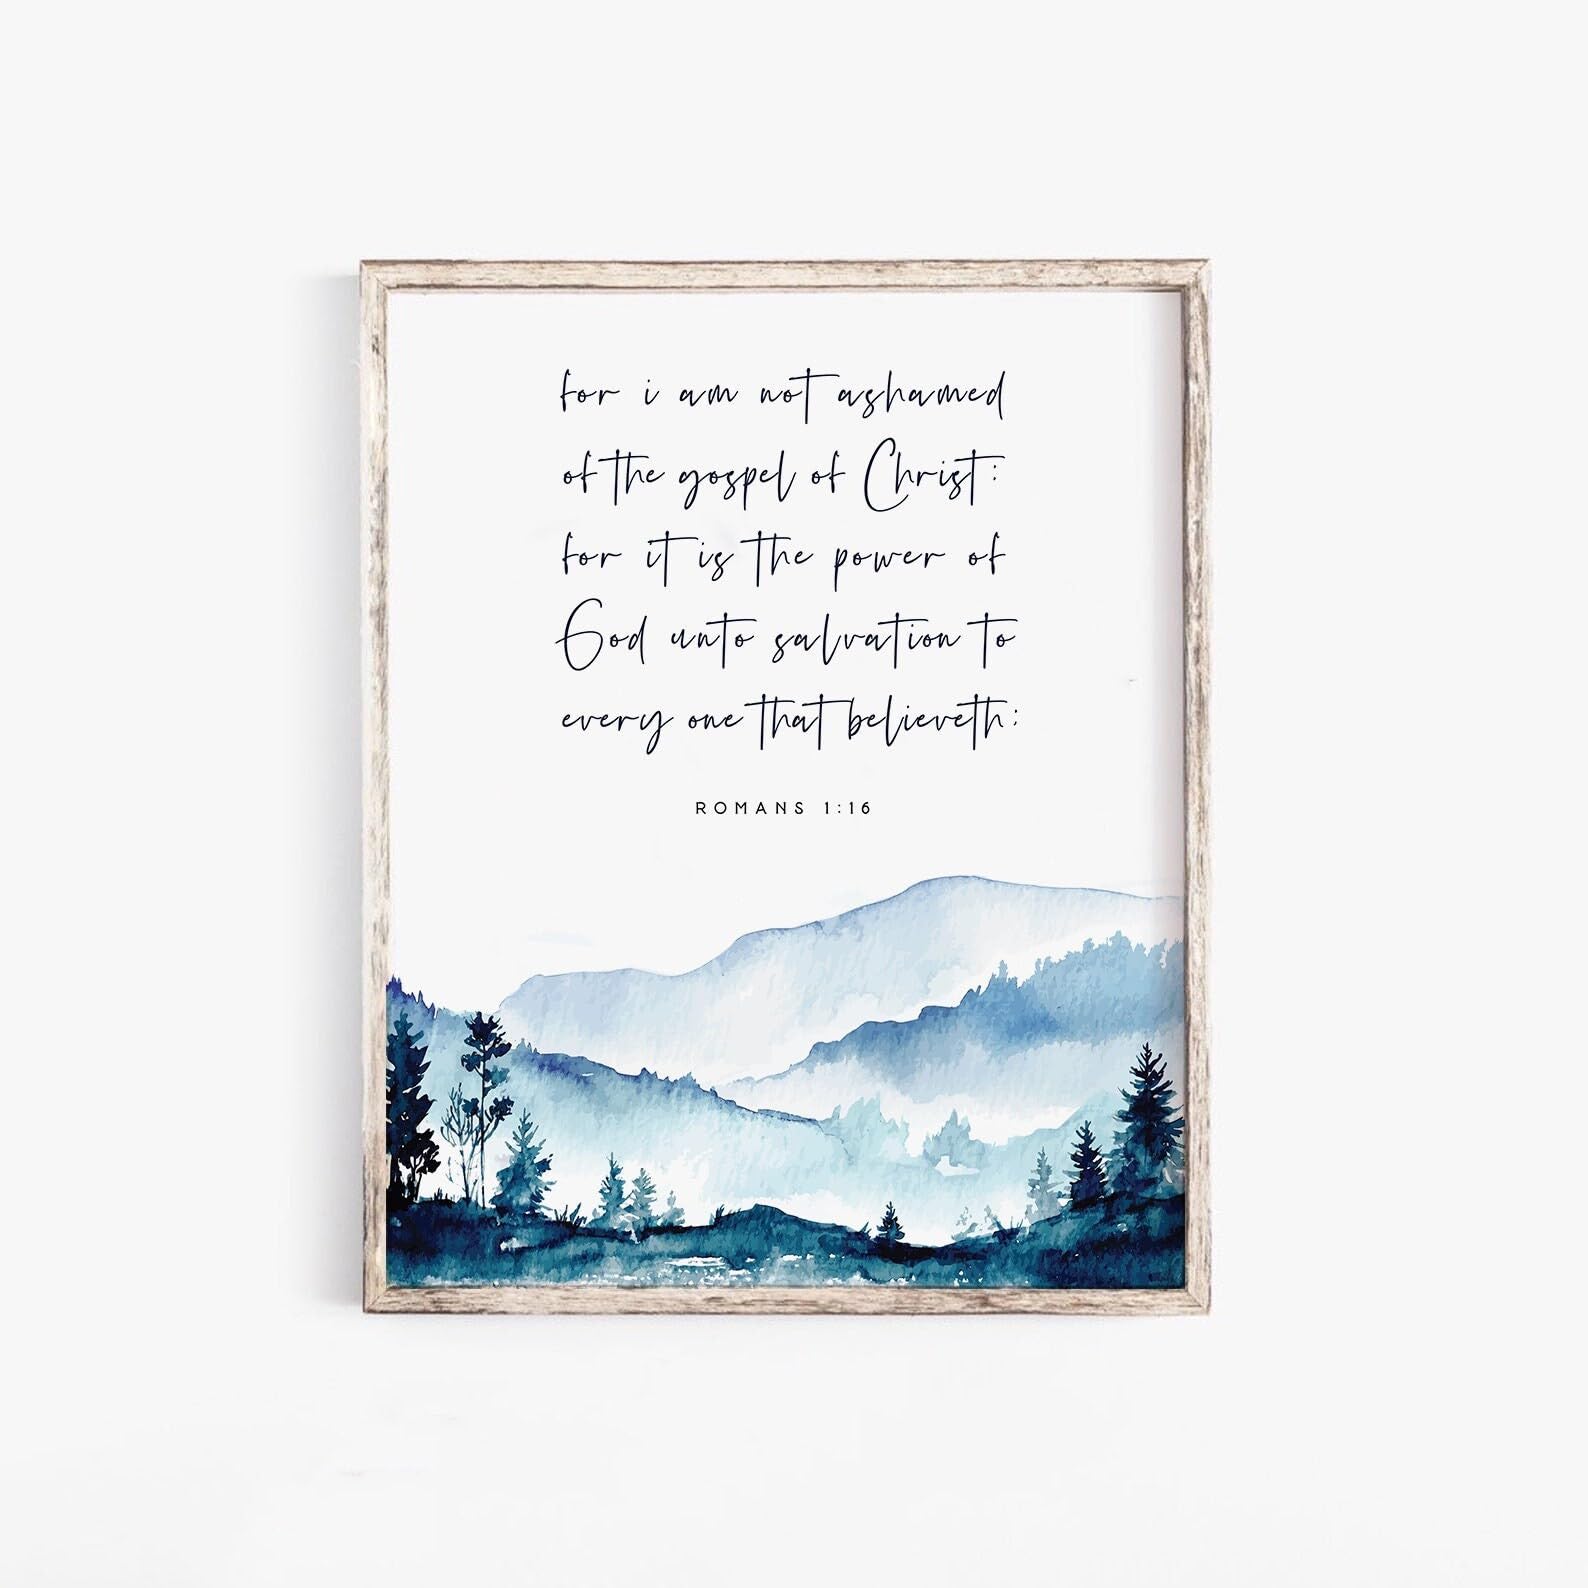 for i am not ashamed
of the gospel of Christ:
for it is the power of
God unto salvation to
every one that believeth:
ROMANS 1:16